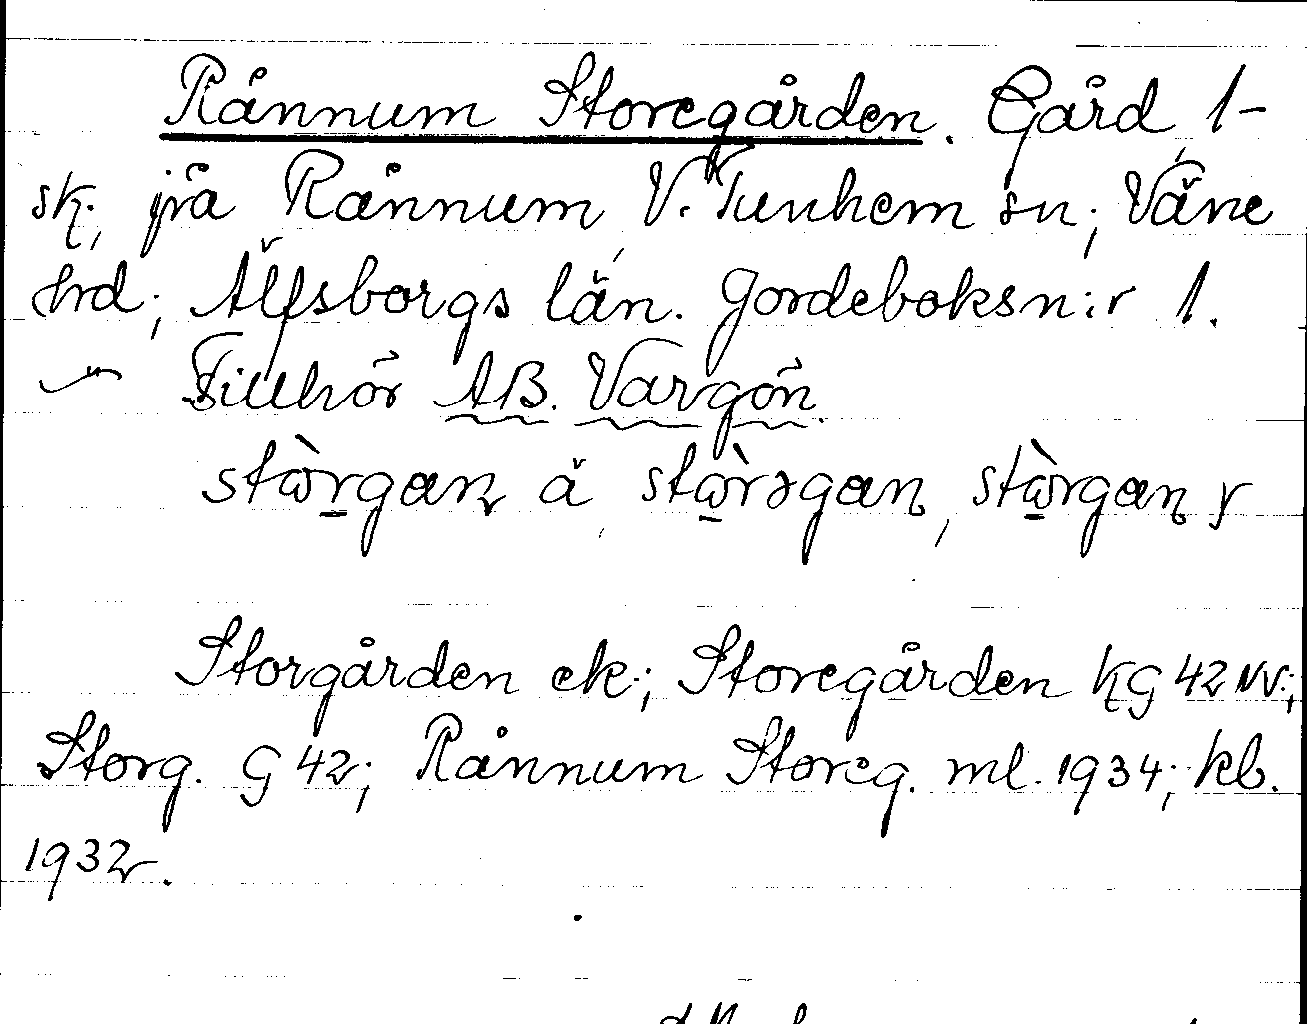 Rånnum Storegården. Gård, 1-
sk., jrå Rånnum, V. Tunhem sn; Väne
hrd; Älfsborgs län. Jordeboksn:r 1.
Tillhör AB. Vargön.
Storgården ek.; Storegården KG 42 NV.;
Storg. G 42; Rånnum Storeg. ml. 1934; kb.
1932.